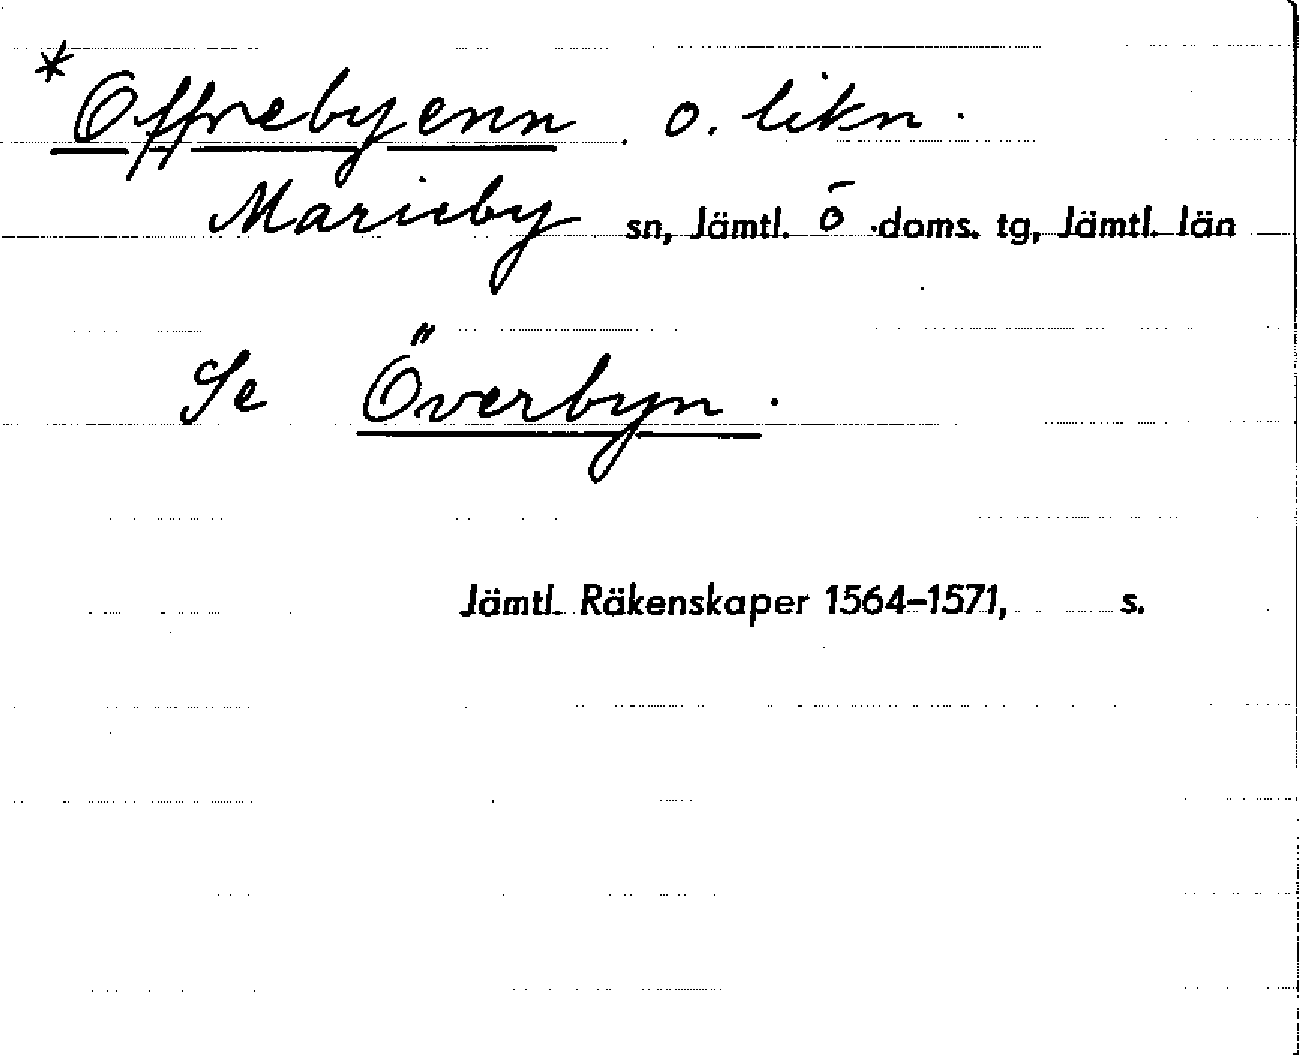 *Offrebyenn o. likn.
Marieby sn, Jämtl. ö doms. tg, Jämtl. län
Se Överbyn.
Jämtl. Räkenskaper 1564–1571, s.